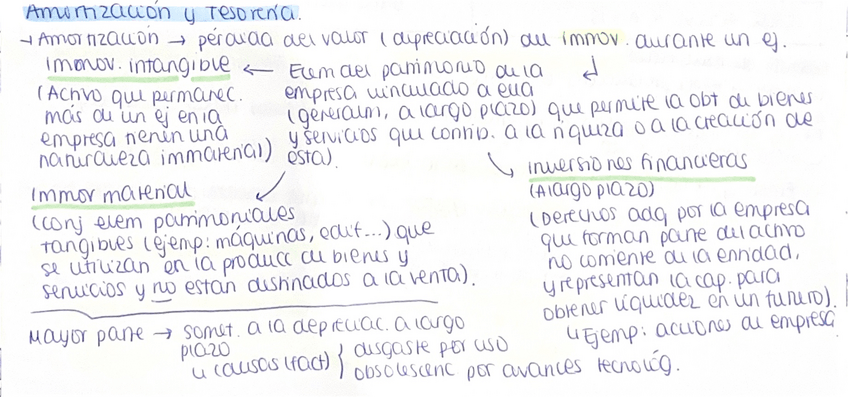 Amortización y Tesorería.
→ Amortización → pérdida del valor (depreciación) del immov. durante un ej.
Immov. intangible ← Elem del patrimonio de la
(Activo que permanec. empresa vinculado a ella
más de un ej en la (generalm, a largo plazo) que permite la obt de bienes
empresa y servicios que contrib. a la riqueza o a la creación de
naturaleza immaterial) ésta).
inversiones financieras
(A largo plazo)
(Derechos adq por la empresa
que forman parte del activo
no corriente de la entidad,
y representan la cap. para
obtener liquidez en un futuro).
↳ Ejemp: acciones de empresa
Immov material
(conj elem patrimoniales
tangibles (ejemp: máquinas, edif...) que
se utilizan en la producc de bienes y
servicios y no estan destinados a la venta).
Mayor parte → somet. a la depreciac. a largo
plazo
↳ causas (fact) { desgaste por uso
obsolescenc por avances tecnológ.